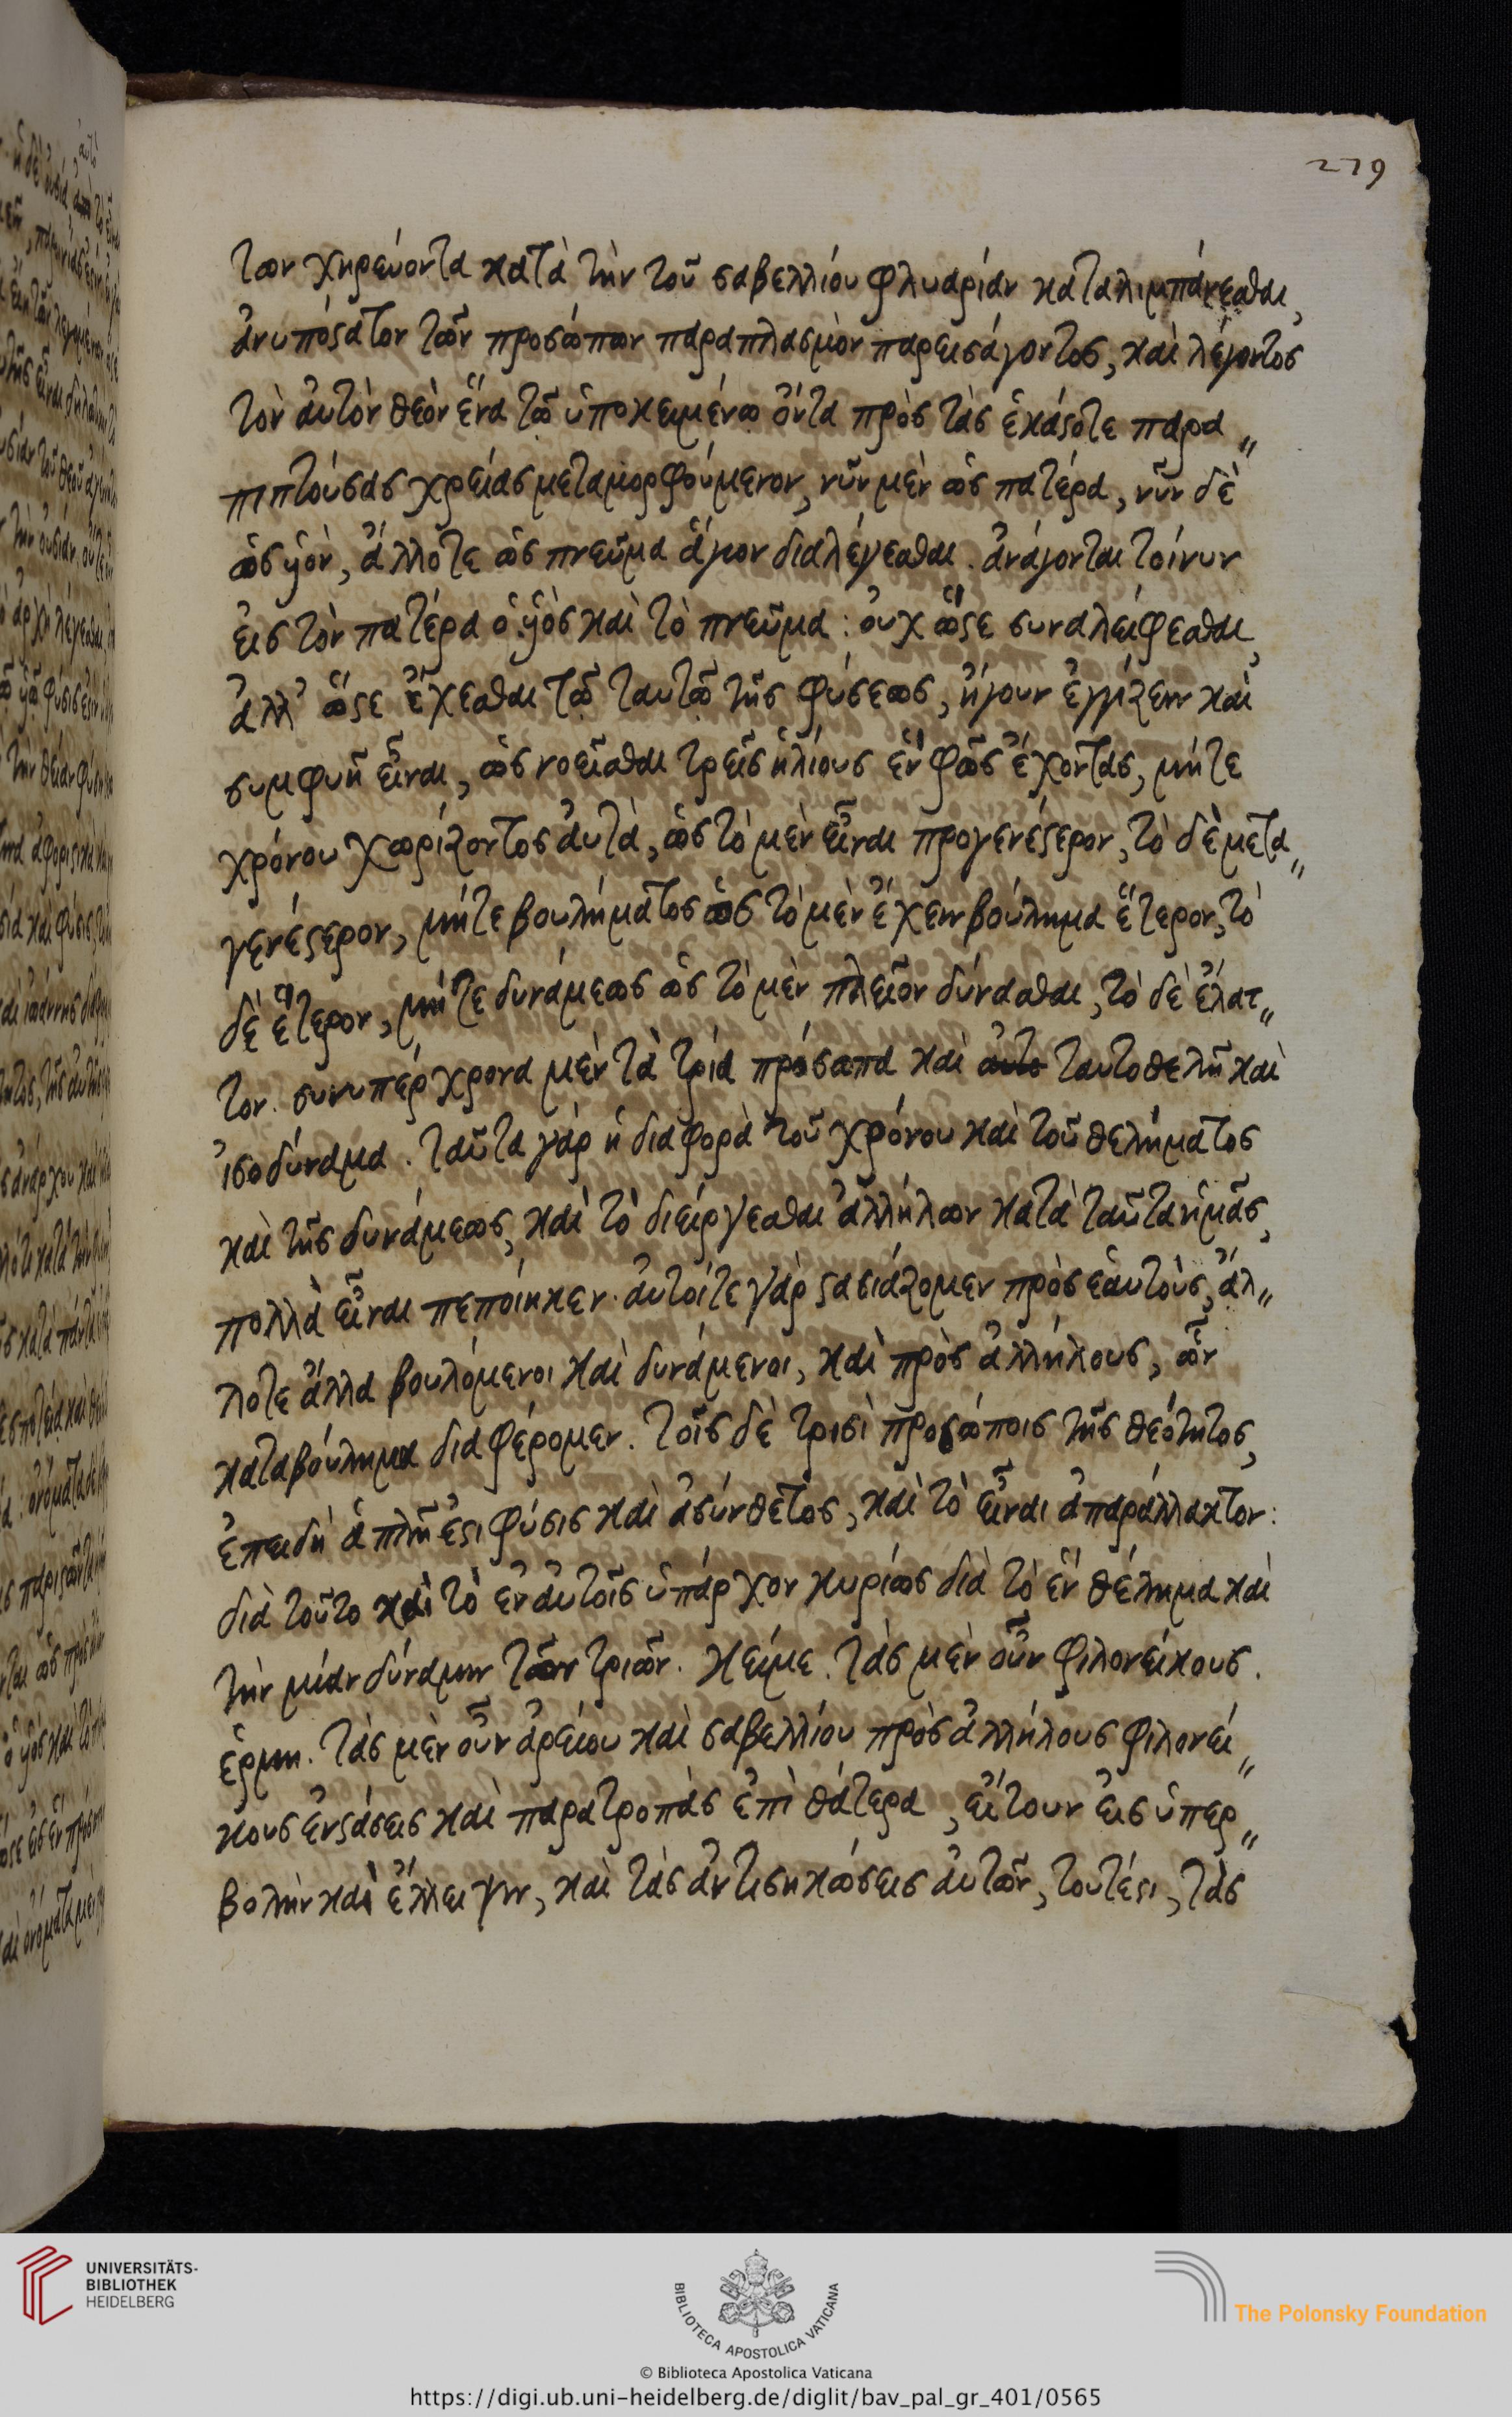 279
των χηρεύοντα κατὰ τὴν τοῦ σαβελλίου φλυαρίαν καταλιμπάνεσθαι,
ἀνυπόστατον τῶν προσώπων παραπλασμὸν παρεισάγοντος, καὶ λέγοντος
τὸν αὐτὸν θεὸν ἕνα τῷ ὑποκειμένω ὄντα πρὸς τὰς ἑκάστοτε παρα„
πιπτούσας χρείας μεταμορφούμενον, νῦν μὲν ὡς πατέρα, νῦν δὲ
ὡς ὑὸν, ἄλλοτε ὡς πνεῦμα ἅγιον διαλέγεσθαι. ἀνάγονται τοίνυν
εἰς τὸν πατέρα ὁ ὑὸς καὶ τὸ πνεῦμα: οὐχ ὥστε συναλείφεσθαι,
ἀλλ' ὥστε ἔχεσθαι τῷ ταυτῷ τῆς φύσεως, ἤγουν ἐγγίζειν καὶ
συμφυῆ εἶναι, ὡς νοεῖσθαι τρεῖς ἡλίους ἓν φῶς ἔχοντας, μήτε
χρόνου χωρίζοντος αὐτὰ, ὡς τὸ μὲν εἶναι προγενέστερον, τὸ δὲ μετα„
γενέστερον, μήτε βουλήματος ὡς τὸ μὲν ἔχειν βούλημα ἕτερον, τὸ
δὲ ἕτερον, μήτε δυνάμεως ὡς τὸ μὲν πλεῖον δύνασθαι, τὸ δὲ ἔλατ„
τον. συνυπέρχρονα μὲν τὰ τρία πρόσωπα καὶ αυτο ταυτοθελῆ καὶ
ἰσοδύναμα. ταῦτα γάρ ἡ διαφορὰ τοῦ χρόνου καὶ τοῦ θελήματος
καὶ τῆς δυνάμεως, καὶ τὸ διείργεσθαι ἀλλήλων κατὰ ταῦτα ἡμᾶς,
πολλὰ εἶναι πεποίηκεν. αὐτοί τε γὰρ στασιάζομεν πρὸς ἑαυτοὺς, ἄλ„
λοτε ἄλλα βουλόμενοι καὶ δυνάμενοι, καὶ πρὸς ἀλλήλους, ὧν
καταβούλημα διαφέρομεν. τοῖς δὲ τρισὶ προσώποις τῆς θεότητος,
ἐπειδὴ ἁπλῆ ἐστι φύσις καὶ ἀσύνθετος, καὶ τὸ εἶναι ἀπαράλλακτον:
διὰ τοῦτο καὶ τὸ ἐν αὐτοῖς ὑπάρχον κυρίως διὰ τὸ ἓν θέλημα καὶ
τὴν μίαν δύναμιν τῶν τριῶν. κείμε. τὰς μὲν οὖν φιλονείκους.
ἑρμη. τὰς μὲν οὖν ἀρείου καὶ σαβελλίου πρὸς ἀλλήλους φιλονεί„
κους ἐνστάσεις καὶ παρατροπὰς ἐπὶ θάτερα, εἴτουν εἰς ὑπερ„
βολὴν καὶ ἔλλειψιν, καὶ τὰς ἀντισηκώσεις αὐτῶν, τουτέστι, τὰς
UNIVERSITÄTS-
BIBLIOTHEK
HEIDELBERG
BIBLIOTECA APOSTOLICA VATICANA
© Biblioteca Apostolica Vaticana
The Polonsky Foundation
https://digi.ub.uni-heidelberg.de/diglit/bav_pal_gr_401/0565